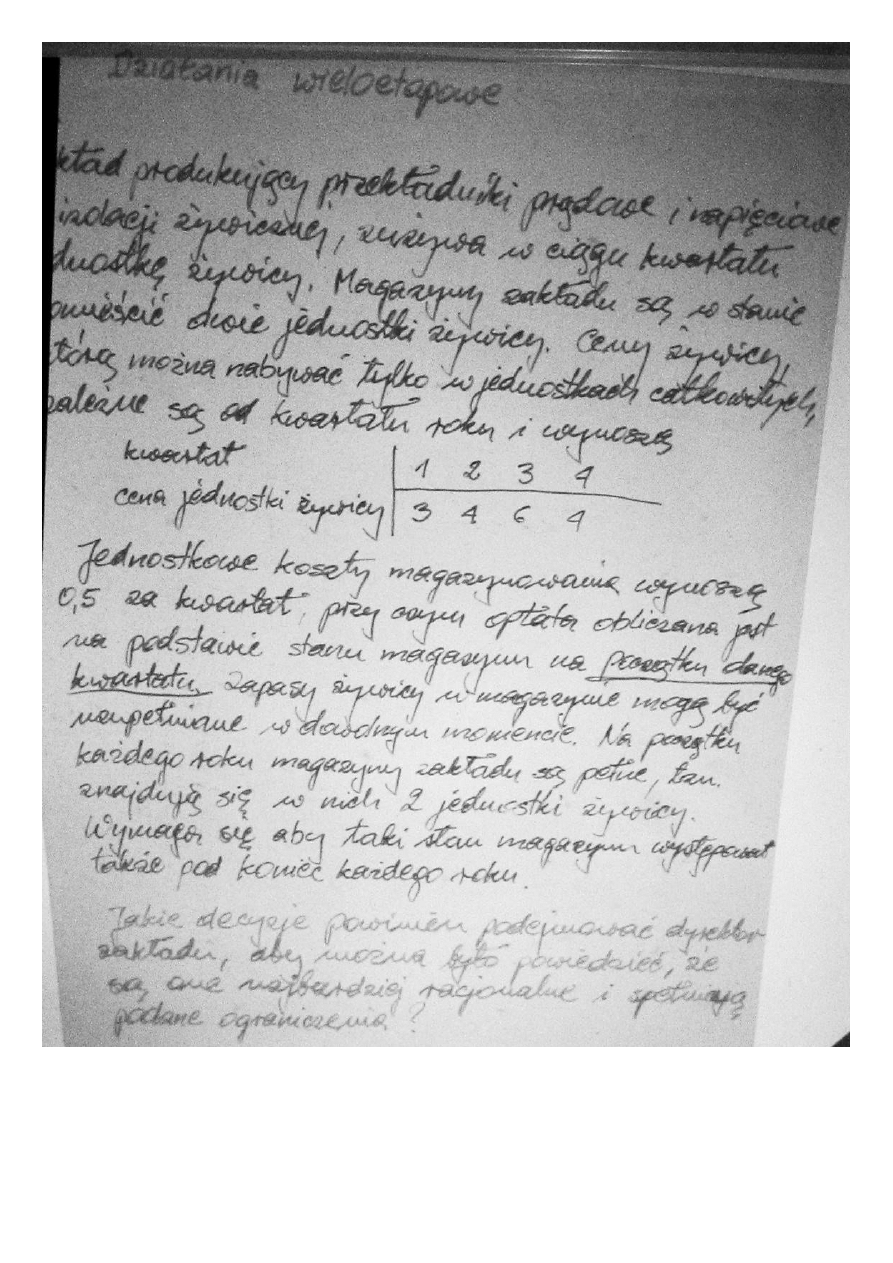 Działania wieloetapowe
kład produkujący przekładniki prądowe i napięciowe
izolacji żywicznej, zużywa w ciągu kwartału
dnostkę żywicy. Magazyny zakładu są w stanie
omieścić dwie jednostki żywicy. Ceny żywicy,
tórą można nabywać tylko w jednostkach całkowitych,
zależne są od kwartału roku i wynoszą
kwartał | 1 2 3 4
cena jednostki żywicy | 3 4 6 4
Jednostkowe koszty magazynowania wynoszą
0,5 za kwartał, przy czym opłata obliczana jest
na podstawie stanu magazynu na początku danego
kwartału. Zapasy żywicy w magazynie mogą być
uzupełniane w dowolnym momencie. Na początku
każdego roku magazyny zakładu są pełne, tzn.
znajdują się w nich 2 jednostki żywicy.
Wymaga się aby taki stan magazynu występował
także pod koniec każdego roku.
Jakie decyzje powinien podejmować dyrektor
zakładu, aby można było powiedzieć, że
są one najbardziej racjonalne i spełniają
podane ograniczenia?